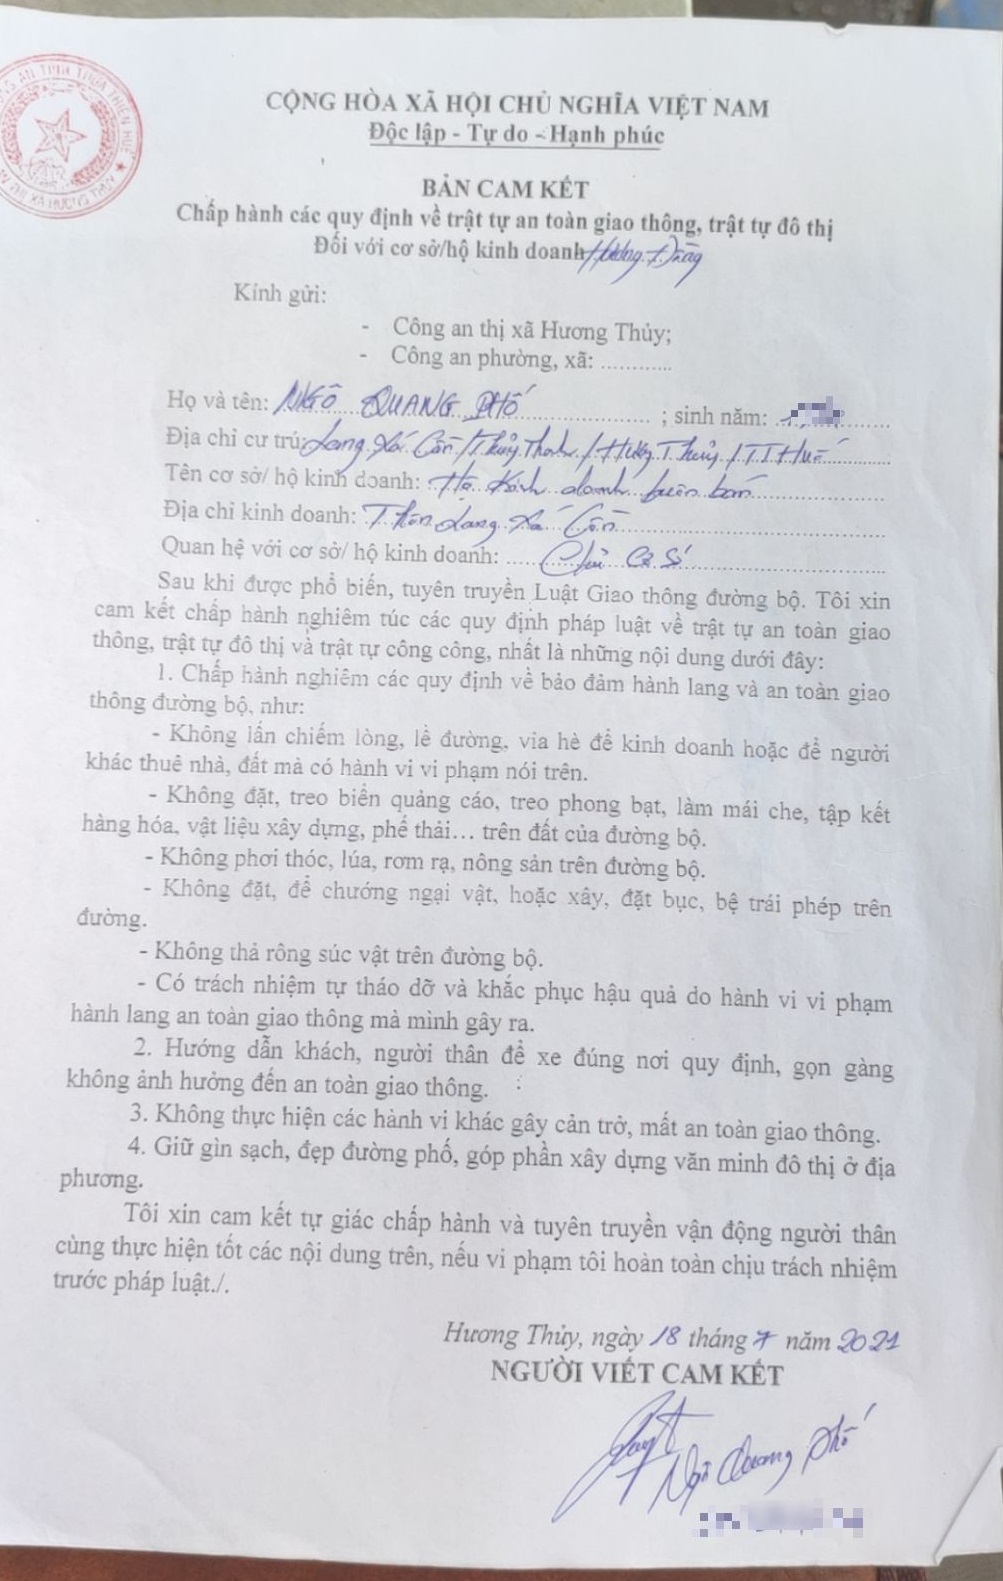 CÔNG AN TỈNH THỪA THIÊN HUẾ
THỊ XÃ HƯƠNG THỦY
CỘNG HÒA XÃ HỘI CHỦ NGHĨA VIỆT NAM
Độc lập - Tự do - Hạnh phúc
BẢN CAM KẾT
Chấp hành các quy định về trật tự an toàn giao thông, trật tự đô thị
Đối với cơ sở/hộ kinh doanh
Kính gửi:
- Công an thị xã Hương Thủy;
- Công an phường, xã: ............
Họ và tên: NGÔ QUANG PHỐ ; sinh năm:
Địa chỉ cư trú: Lang Xá Cồn / Thủy Thanh / Hương Thủy / TT Huế
Tên cơ sở/ hộ kinh doanh: Hộ Kinh doanh buôn bán
Địa chỉ kinh doanh: Thôn Lang Xá Cồn
Quan hệ với cơ sở/ hộ kinh doanh: Chủ Cơ Sở
Sau khi được phổ biến, tuyên truyền Luật Giao thông đường bộ. Tôi xin
cam kết chấp hành nghiêm túc các quy định pháp luật về trật tự an toàn giao
thông, trật tự đô thị và trật tự công công, nhất là những nội dung dưới đây:
1. Chấp hành nghiêm các quy định về bảo đảm hành lang và an toàn giao
thông đường bộ, như:
- Không lấn chiếm lòng, lề đường, vỉa hè để kinh doanh hoặc để người
khác thuê nhà, đất mà có hành vi vi phạm nói trên.
- Không đặt, treo biển quảng cáo, treo phong bạt, làm mái che, tập kết
hàng hóa, vật liệu xây dựng, phế thải... trên đất của đường bộ.
- Không phơi thóc, lúa, rơm rạ, nông sản trên đường bộ.
- Không đặt, để chướng ngại vật, hoặc xây, đặt bục, bệ trái phép trên
đường.
- Không thả rông súc vật trên đường bộ.
- Có trách nhiệm tự tháo dỡ và khắc phục hậu quả do hành vi vi phạm
hành lang an toàn giao thông mà mình gây ra.
2. Hướng dẫn khách, người thân để xe đúng nơi quy định, gọn gàng
không ảnh hưởng đến an toàn giao thông.
3. Không thực hiện các hành vi khác gây cản trở, mất an toàn giao thông.
4. Giữ gìn sạch, đẹp đường phố, góp phần xây dựng văn minh đô thị ở địa
phương.
Tôi xin cam kết tự giác chấp hành và tuyên truyền vận động người thân
cùng thực hiện tốt các nội dung trên, nếu vi phạm tôi hoàn toàn chịu trách nhiệm
trước pháp luật./.
Hương Thủy, ngày 18 tháng 7 năm 2021
NGƯỜI VIẾT CAM KẾT
Ngô Quang Phố